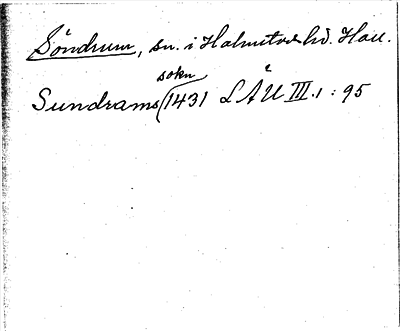 Söndrum, sn. i Halmstads hd. Hall.
Sundrams sokn 1431 LÄU III.1 : 95